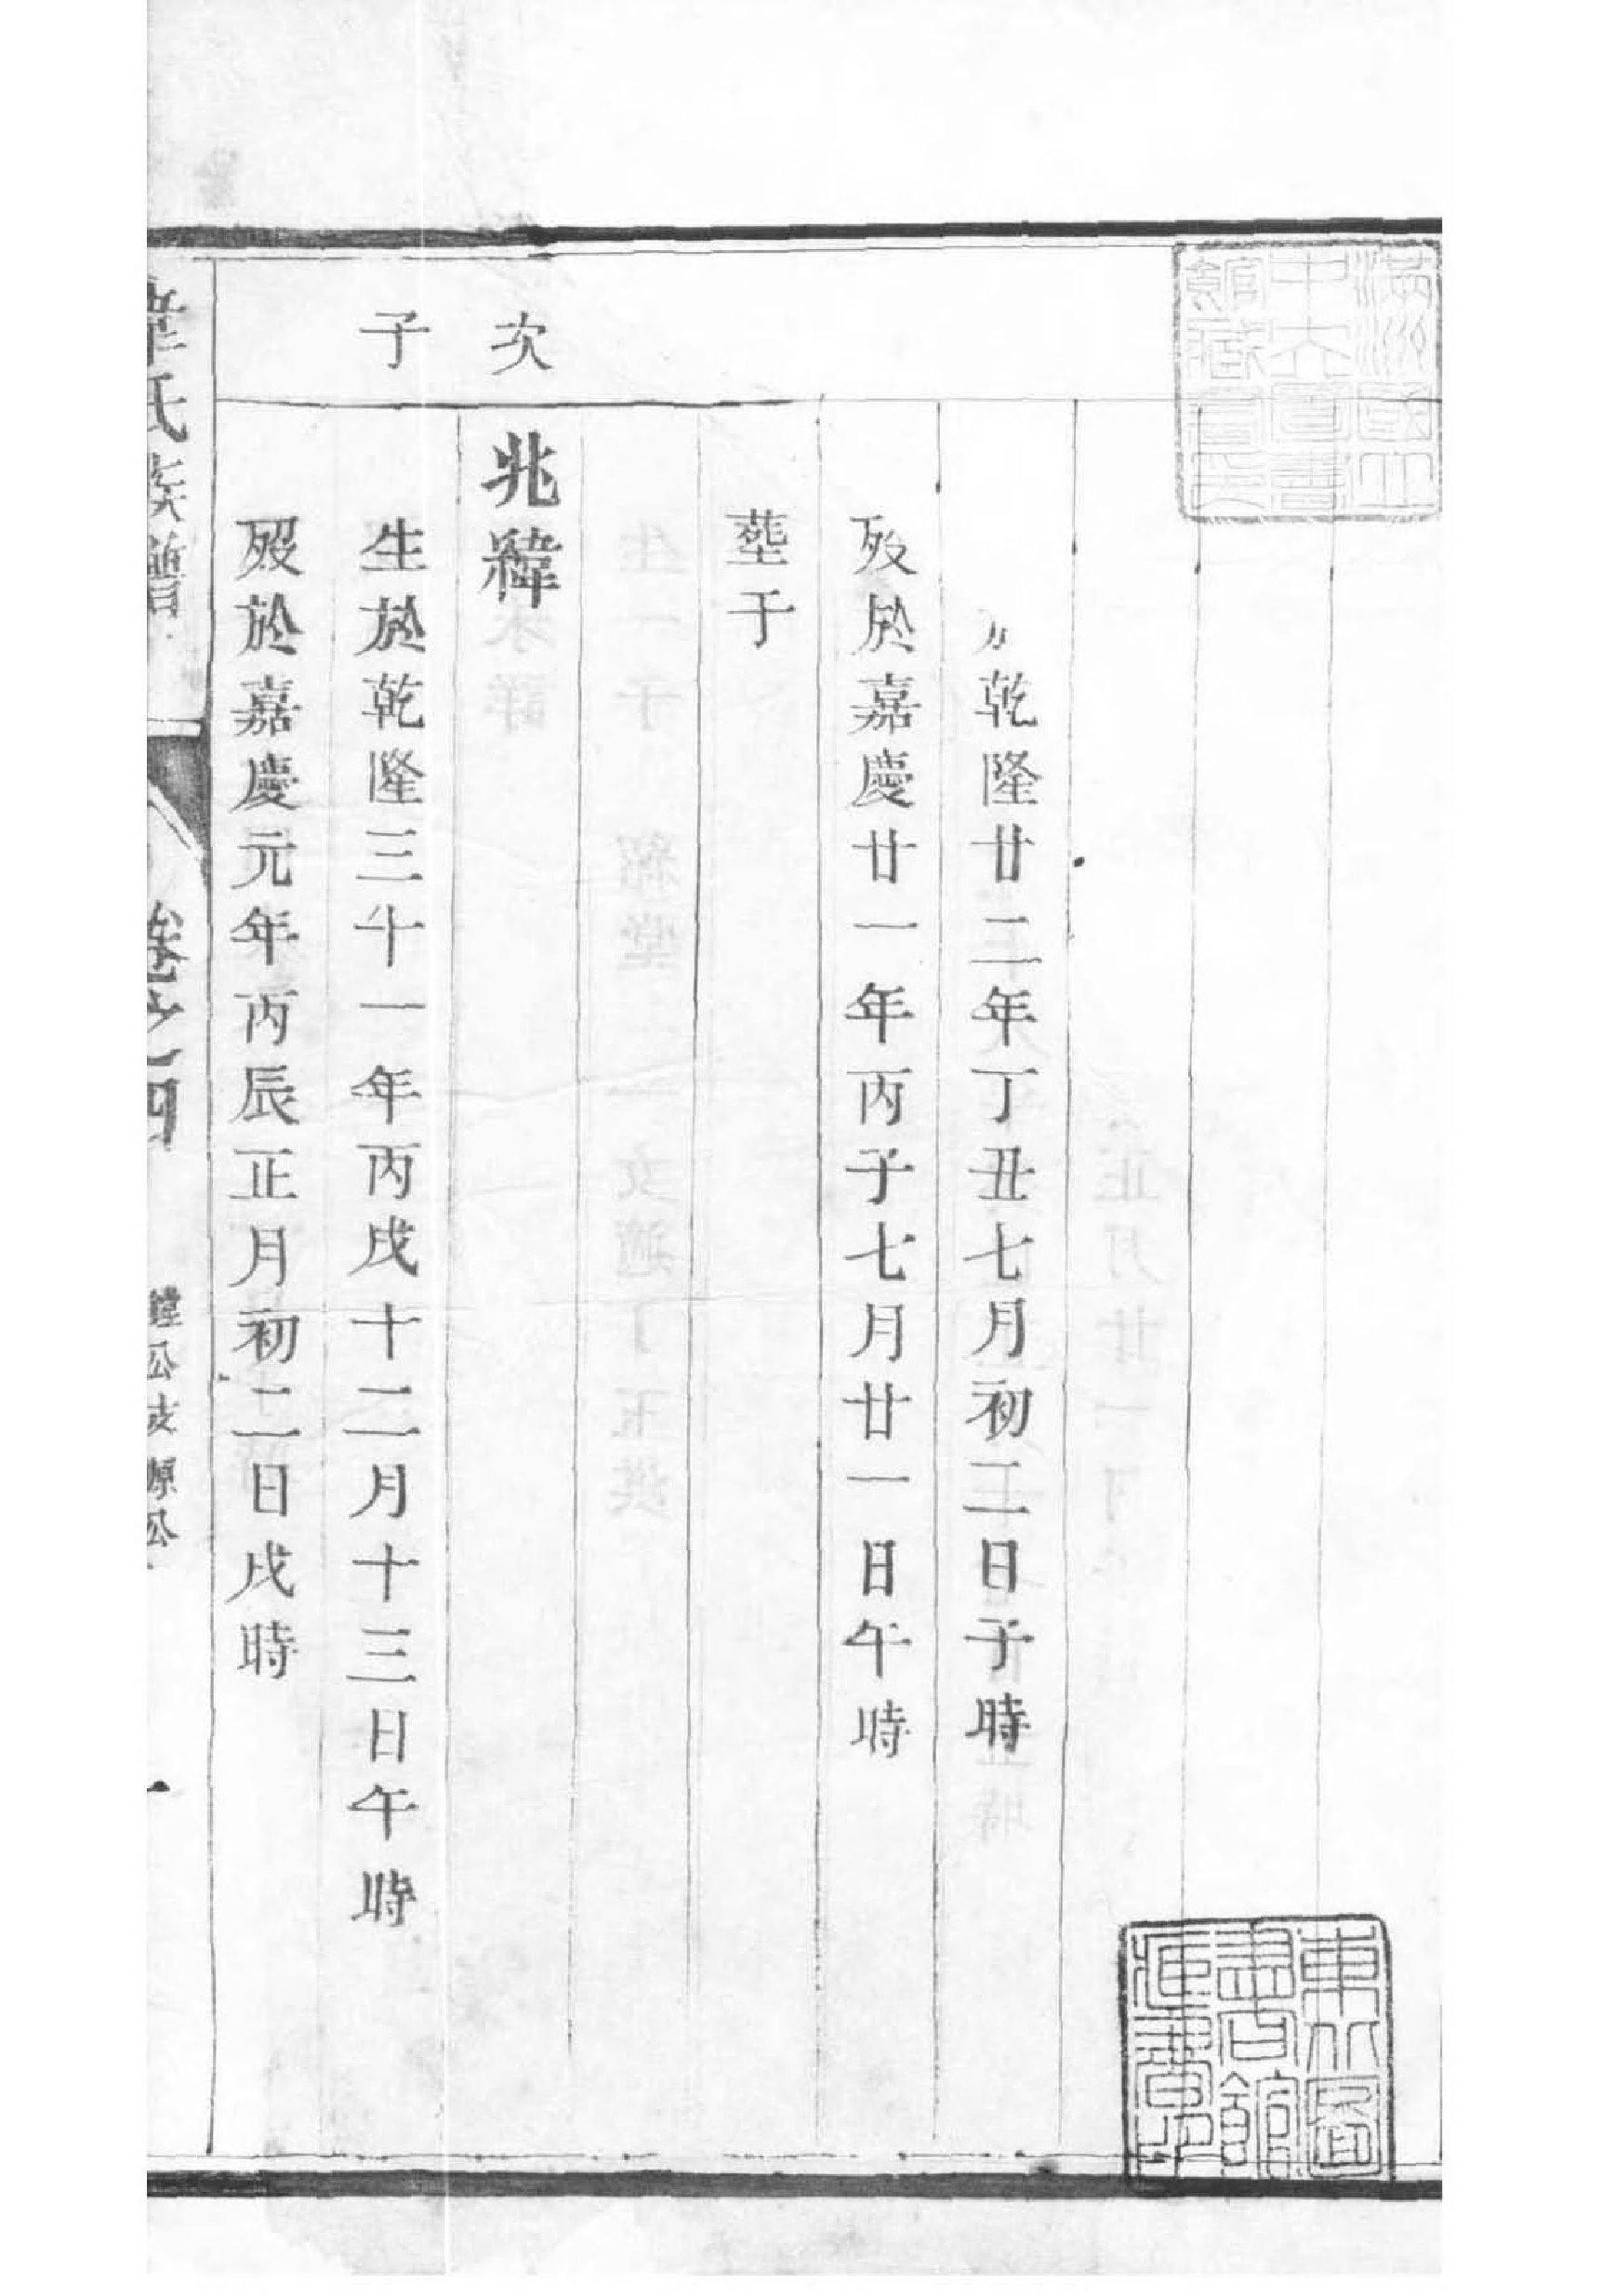 滿洲國立
中央圖書
館藏書
東北圖
書館
於乾隆廿二年丁丑七月初二日子時
歿於嘉慶廿一年丙子七月廿一日午時
塟于
次子
兆緯
生於乾隆三十一年丙戌十二月十三日午時
歿於嘉慶元年丙辰正月初二日戌時
氏族譜
卷之四
公支源公
一